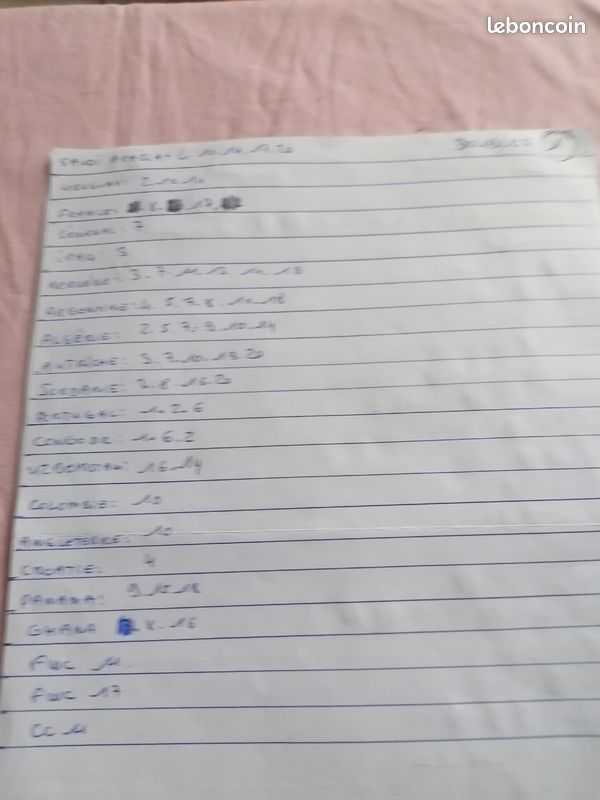 leboncoin
SAUDI ARABIA 10. 14. 17. 20 DOUBLES
URUGUAY: 2. 10. 14
FRANCE: 8. 17.
SÉNÉGAL: 7
IRAQ:
NORVÈGE: 3. 7. 11. 12. 14. 18
ARGENTINE: 4. 5. 7. 8. 10. 18
ALGÉRIE: 2. 5. 7. 9. 10. 14
AUTRICHE: 3. 7. 10. 19. 20
JORDANIE: 3. 8. 16. 20
PORTUGAL: 1. 2. 6
CONGO DR: 1. 6. 2
16. 14
COLOMBIE: 10
ANGLETERRE: 10
CROATIE: 4
PANAMA: 9. 15. 18
GHANA 8. 16
FWC 11.
FWC 17
CC 11